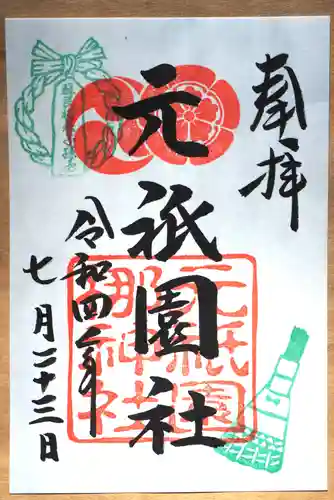 奉拝
元祇園社
令和四年
七月二十三日
元祇園
梛神社